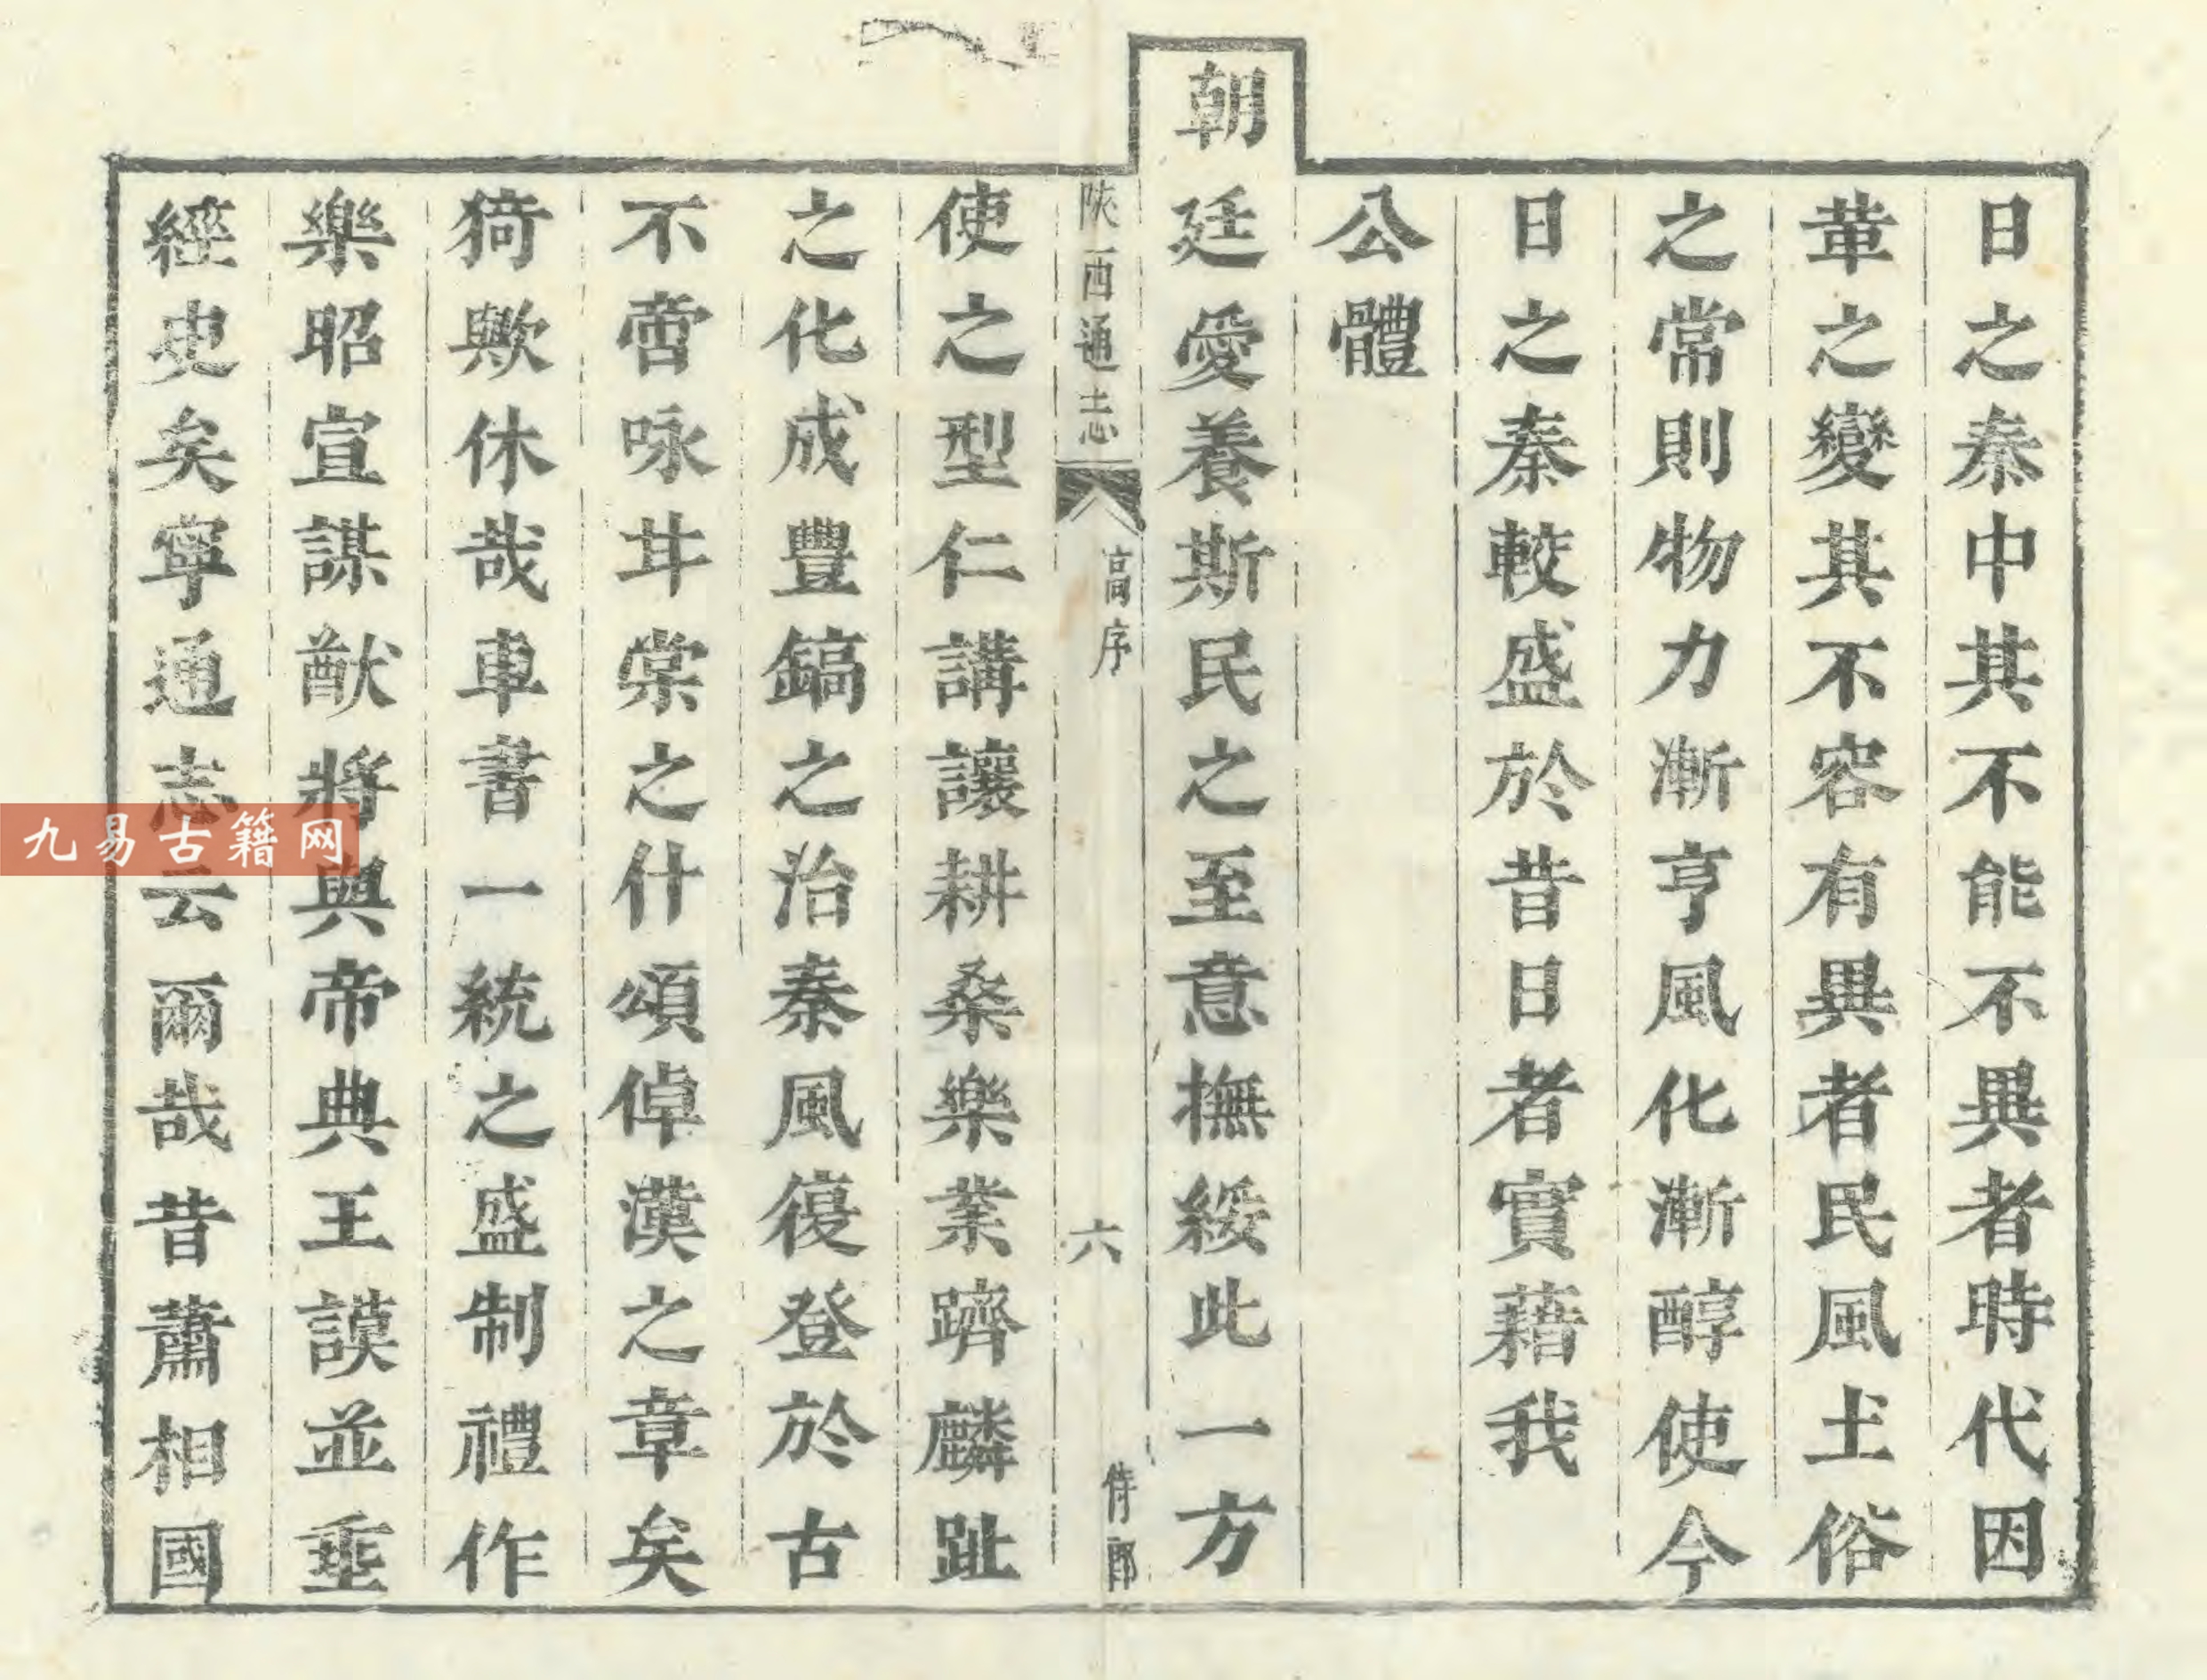 日之秦中其不能不異者時代因
革之變其不容有異者民風土俗
之常則物力漸亨風化漸醇使今
日之秦較盛於昔日者實藉我
公體
朝廷愛養斯民之至意撫綏此一方
陝西通志 高序 六 侍郎
使之型仁講讓耕桑樂業躋麟趾
之化成豐鎬之治秦風復登於古
不啻咏甘棠之什頌倬漢之章矣
猗歟休哉車書一統之盛制禮作
樂昭宣謀猷將與帝典王謨並垂
經史矣寧通志云爾哉昔蕭相國
九易古籍网